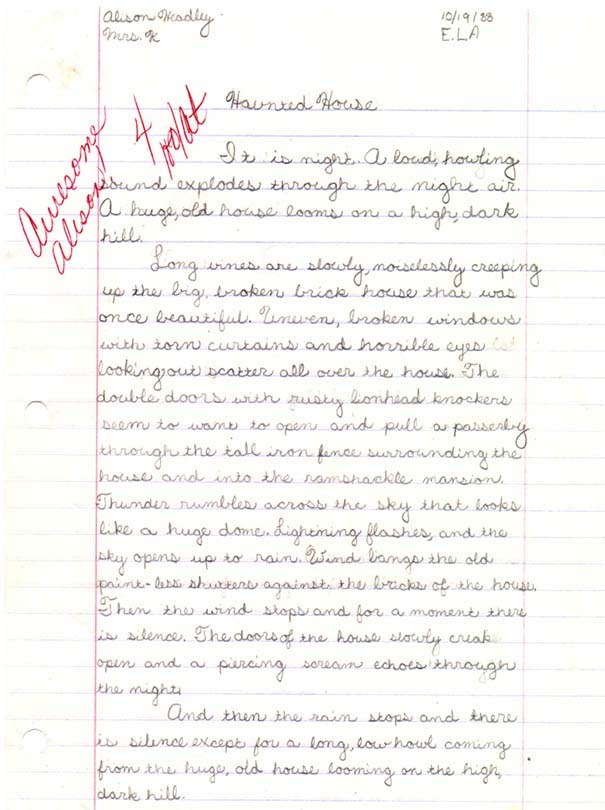 Alison Headley
Mrs. K
10/19/88
E.LA
Awesome
Alison
4
Haunted House
It is night. A loud, howling
sound explodes through the night air.
A huge, old house looms on a high, dark
hill.
Long vines are slowly, noiselessly creeping
up the big, broken brick house that was
once beautiful. Uneven, broken windows
with torn curtains and horrible eyes
looking out scatter all over the house. The
double doors with rusty lionhead knockers
seem to want to open and pull a passerby
through the tall iron fence surrounding the
house and into the ramshackle mansion.
Thunder rumbles across the sky that looks
like a huge dome. Lightning flashes, and the
sky opens up to rain. Wind bangs the old
paint-less shutters against the bricks of the house.
Then the wind stops and for a moment there
is silence. The doors of the house slowly creak
open and a piercing scream echoes through
the night.
And then the rain stops and there
is silence except for a long, low howl coming
from the huge, old house looming on the high,
dark hill.